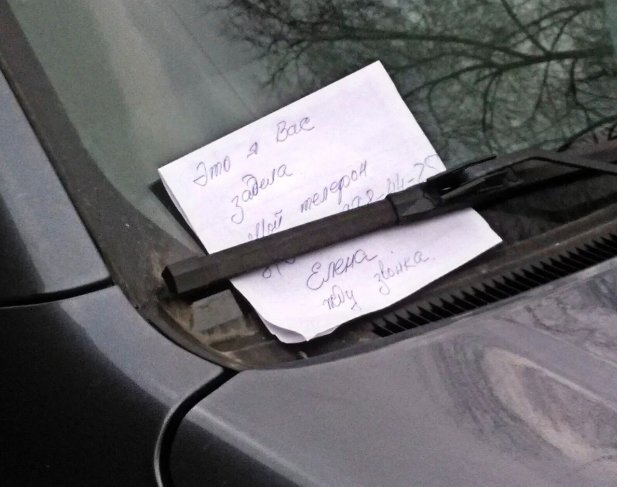 Это я Вас
задела
Мой телефон
Елена
жду звонка.